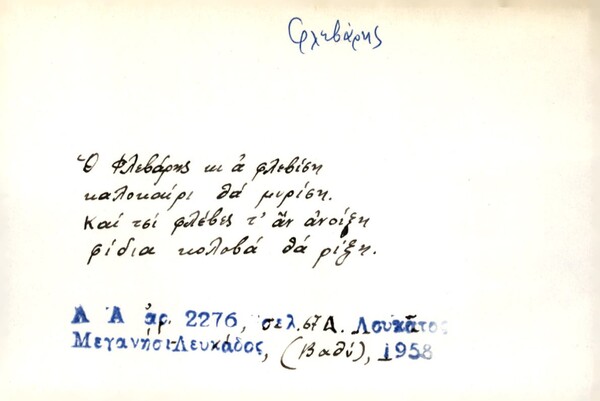 Φλεβάρης
Ὁ Φλεβάρης κι ἄ φλεβίση
καλοκαίρι θά μυρίση.
Καί τσί φλέβες τ' ἄν ἀνοίξη
φίδια κολοβά θά ρίξη.
Λ Ἀ ἀρ. 2276, σελ. 67 Δ. Λουκᾶτος
Μεγανήσι-Λευκάδος, (Βαθύ), 1958